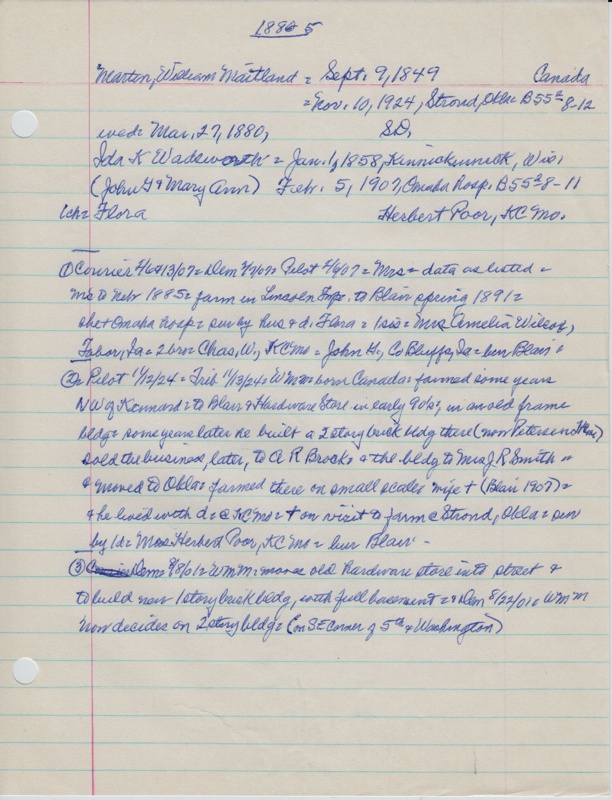 1885
Martin, William Maitland = Sept. 9, 1849 Canada
= Nov. 10, 1924, Stroud, Okla B55² 8-12
wed = Mar. 27, 1880, SD.
Ida K Wadsworth = Jan. 1, 1858, Kinnickinnick, Wis.
(John G & Mary Ann) Feb. 5, 1907, Omaha hosp. B55² 8-11
1ch = Flora Herbert Poor, KC Mo.
① Courier 2/6&13/07 = Dem 2/7/07 = Pilot 2/6/07 = Mrs = data as listed =
Ms to Nebr 1885 = farm in Lincoln Twp. to Blair spring 1891 =
she + Omaha hosp = sur by hus & d. Flora = 1 sis = Mrs Amelia Wilcox,
Tabor, Ia = 2 bro = Chas. W, KC Mo = John H., Co Bluffs, Ia = bur Blair =
② = Pilot 11/12/24 = Trib 11/13/24 = WMM = born Canada = farmed some years
NW of Kennard = to Blair & Hardware Store in early 90's, in an old frame
bldg = some years later he built a 2 story brick bldg there (now Petersen
sold the business, later, to A R Brock & the bldg to Mrs J R Smith =
& moved to Okla = farmed there on small scale = wife + (Blair 1907) =
& he lived with d @ KC Mo = + on visit to farm @ Stroud, Okla = sur
by 1d = Mrs Herbert Poor, KC Mo = bur Blair -
③ Dem = 8/8/01 = WMM = moves old hardware store into street &
to build new 1 story brick bldg, with full basement = & Dem 8/22/01 = WMM
now decides on 2 story bldg = (on SE corner of 5th & Washington)